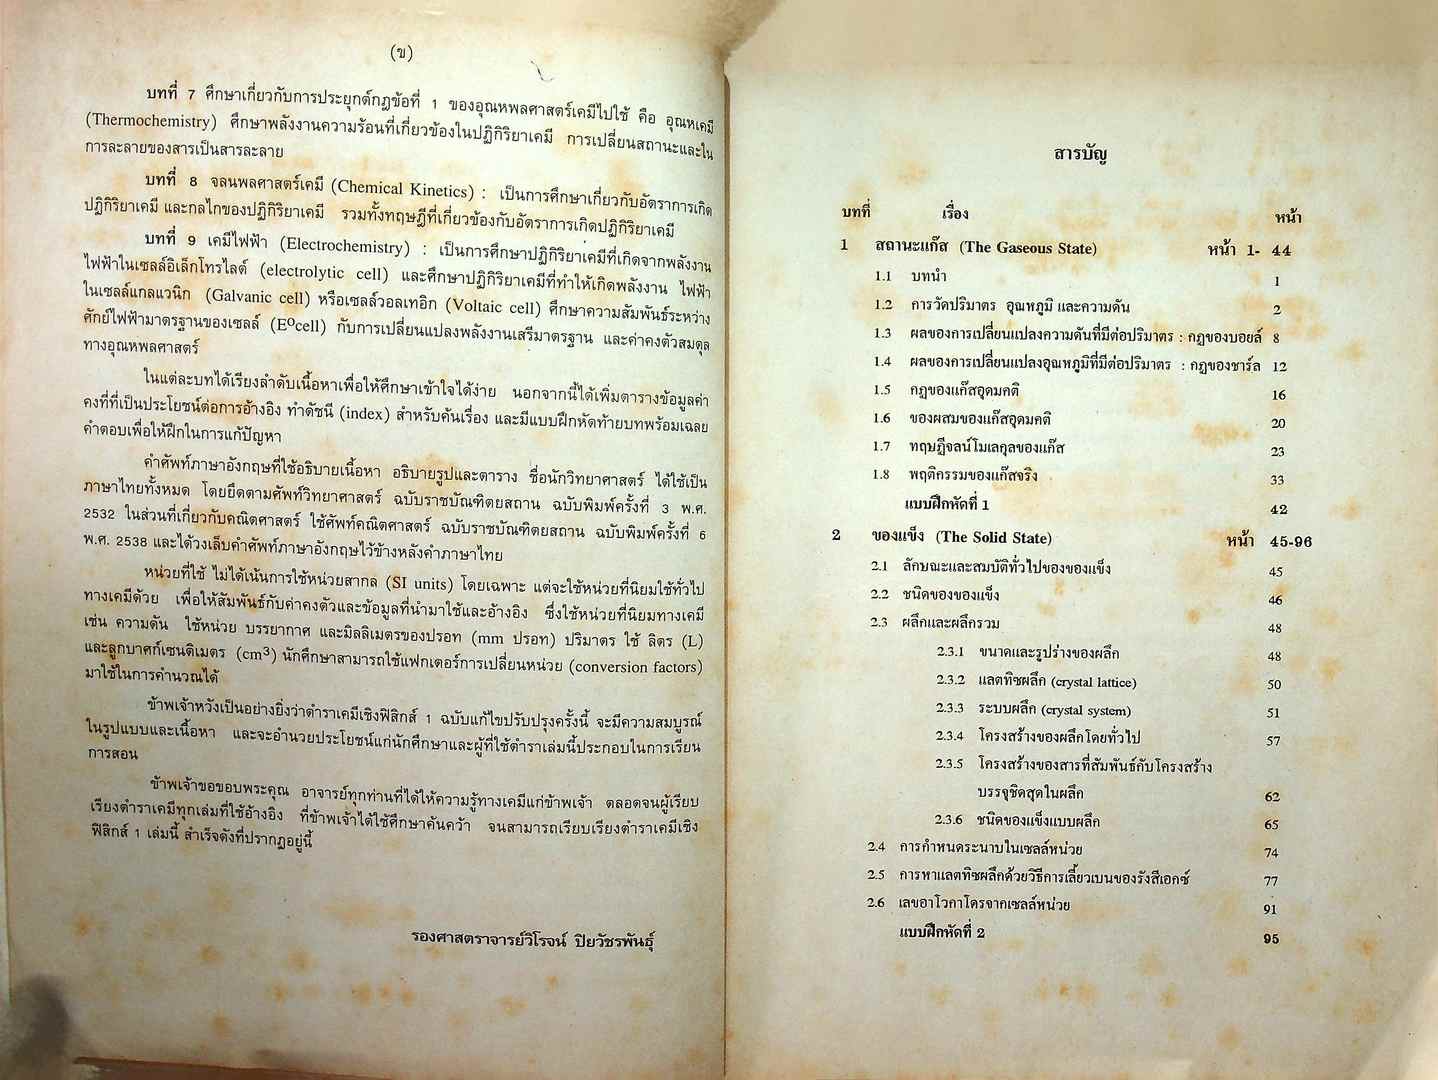 (ข)
บทที่ 7 ศึกษาเกี่ยวกับการประยุกต์กฎข้อที่ 1 ของอุณหพลศาสตร์เคมีไปใช้ คือ อุณหเคมี
(Thermochemistry) ศึกษาพลังงานความร้อนที่เกี่ยวข้องในปฏิกิริยาเคมี การเปลี่ยนสถานะและใน
การละลายของสารเป็นสารละลาย
บทที่ 8 จลนพลศาสตร์เคมี (Chemical Kinetics) : เป็นการศึกษาเกี่ยวกับอัตราการเกิด
ปฏิกิริยาเคมี และกลไกของปฏิกิริยาเคมี รวมทั้งทฤษฎีที่เกี่ยวข้องกับอัตราการเกิดปฏิกิริยาเคมี
บทที่ 9 เคมีไฟฟ้า (Electrochemistry) : เป็นการศึกษาปฏิกิริยาเคมีที่เกิดจากพลังงาน
ไฟฟ้าในเซลล์อิเล็กโทรไลต์ (electrolytic cell) และศึกษาปฏิกิริยาเคมีที่ทำให้เกิดพลังงาน ไฟฟ้า
ในเซลล์แกลแวนิก (Galvanic cell) หรือเซลล์วอลเทอิก (Voltaic cell) ศึกษาความสัมพันธ์ระหว่าง
ศักย์ไฟฟ้ามาตรฐานของเซลล์ (E⁰cell) กับการเปลี่ยนแปลงพลังงานเสรีมาตรฐาน และค่าคงตัวสมดุล
ทางอุณหพลศาสตร์
ในแต่ละบทได้เรียงลำดับเนื้อหาเพื่อให้ศึกษาเข้าใจได้ง่าย นอกจากนี้ได้เพิ่มตารางข้อมูลค่า
คงที่ที่เป็นประโยชน์ต่อการอ้างอิง ทำดัชนี (index) สำหรับค้นเรื่อง และมีแบบฝึกหัดท้ายบทพร้อมเฉลย
คำตอบเพื่อให้ฝึกในการแก้ปัญหา
คำศัพท์ภาษาอังกฤษที่ใช้อธิบายเนื้อหา อธิบายรูปและตาราง ชื่อนักวิทยาศาสตร์ ได้ใช้เป็น
ภาษาไทยทั้งหมด โดยยึดตามศัพท์วิทยาศาสตร์ ฉบับราชบัณฑิตยสถาน ฉบับพิมพ์ครั้งที่ 3 พ.ศ.
2532 ในส่วนที่เกี่ยวกับคณิตศาสตร์ ใช้ศัพท์คณิตศาสตร์ ฉบับราชบัณฑิตยสถาน ฉบับพิมพ์ครั้งที่ 6
พ.ศ. 2538 และได้วงเล็บคำศัพท์ภาษาอังกฤษไว้ข้างหลังคำภาษาไทย
หน่วยที่ใช้ ไม่ได้เน้นการใช้หน่วยสากล (SI units) โดยเฉพาะ แต่จะใช้หน่วยที่นิยมใช้ทั่วไป
ทางเคมีด้วย เพื่อให้สัมพันธ์กับค่าคงตัวและข้อมูลที่นำมาใช้และอ้างอิง ซึ่งใช้หน่วยที่นิยมทางเคมี
เช่น ความดัน ใช้หน่วย บรรยากาศ และมิลลิเมตรของปรอท (mm ปรอท) ปริมาตร ใช้ ลิตร (L)
และลูกบาศก์เซนติเมตร (cm³) นักศึกษาสามารถใช้แฟกเตอร์การเปลี่ยนหน่วย (conversion factors)
มาใช้ในการคำนวณได้
ข้าพเจ้าหวังเป็นอย่างยิ่งว่าตำราเคมีเชิงฟิสิกส์ 1 ฉบับแก้ไขปรับปรุงครั้งนี้ จะมีความสมบูรณ์
ในรูปแบบและเนื้อหา และจะอำนวยประโยชน์แก่นักศึกษาและผู้ที่ใช้ตำราเล่มนี้ประกอบในการเรียน
การสอน
ข้าพเจ้าขอขอบพระคุณ อาจารย์ทุกท่านที่ได้ให้ความรู้ทางเคมีแก่ข้าพเจ้า ตลอดจนผู้เรียบ
เรียงตำราเคมีทุกเล่มที่ใช้อ้างอิง ที่ข้าพเจ้าได้ใช้ศึกษาค้นคว้า จนสามารถเรียบเรียงตำราเคมีเชิง
ฟิสิกส์ 1 เล่มนี้ สำเร็จดังที่ปรากฏอยู่นี้
รองศาสตราจารย์วิโรจน์ ปิยวัชรพันธุ์
สารบัญ
บทที่ เรื่อง หน้า
1 สถานะแก๊ส (The Gaseous State) หน้า 1- 44
1.1 บทนำ 1
1.2 การวัดปริมาตร อุณหภูมิ และความดัน 2
1.3 ผลของการเปลี่ยนแปลงความดันที่มีต่อปริมาตร : กฎของบอยล์ 8
1.4 ผลของการเปลี่ยนแปลงอุณหภูมิที่มีต่อปริมาตร : กฎของชาร์ล 12
1.5 กฎของแก๊สอุดมคติ 16
1.6 ของผสมของแก๊สอุดมคติ 20
1.7 ทฤษฎีจลน์โมเลกุลของแก๊ส 23
1.8 พฤติกรรมของแก๊สจริง 33
แบบฝึกหัดที่ 1 42
2 ของแข็ง (The Solid State) หน้า 45-96
2.1 ลักษณะและสมบัติทั่วไปของของแข็ง 45
2.2 ชนิดของของแข็ง 46
2.3 ผลึกและผลึกรวม 48
2.3.1 ขนาดและรูปร่างของผลึก 48
2.3.2 แลตทิซผลึก (crystal lattice) 50
2.3.3 ระบบผลึก (crystal system) 51
2.3.4 โครงสร้างของผลึกโดยทั่วไป 57
2.3.5 โครงสร้างของสารที่สัมพันธ์กับโครงสร้าง
บรรจุชิดสุดในผลึก 62
2.3.6 ชนิดของแข็งแบบผลึก 65
2.4 การกำหนดระนาบในเซลล์หน่วย 74
2.5 การหาแลตทิซผลึกด้วยวิธีการเลี้ยวเบนของรังสีเอกซ์ 77
2.6 เลขอาโวกาโดรจากเซลล์หน่วย 91
แบบฝึกหัดที่ 2 95